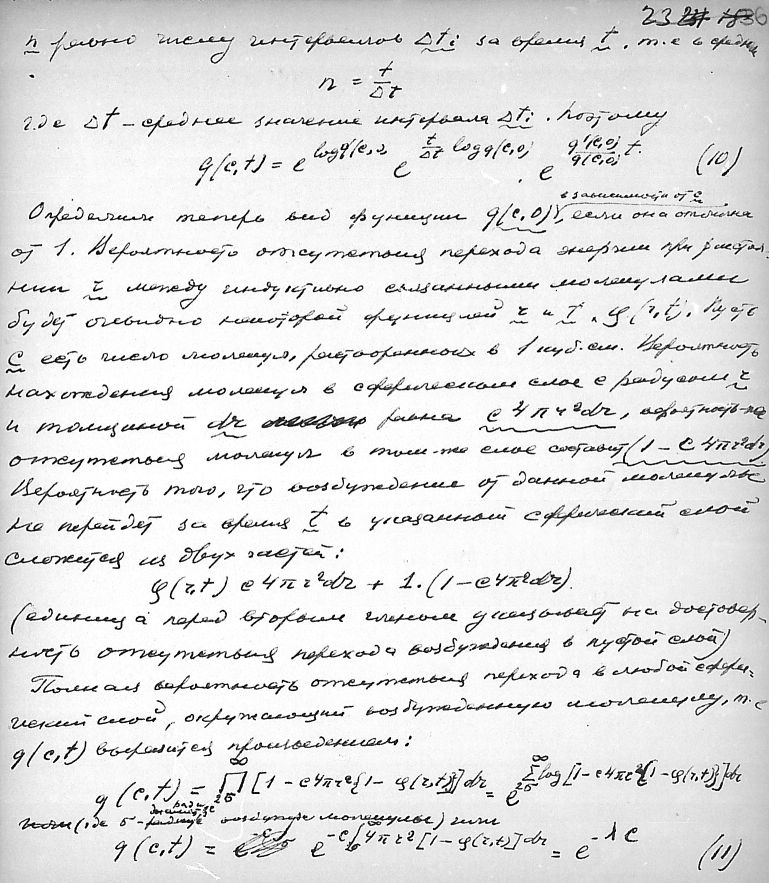 23
n равно числу интервалов Δti за время t, т.е в средн
n = t/Δt
где Δt – среднее значение интервала Δti. Поэтому
q(c,t) = e^{log q(c,0)} e^{t/Δt log q(c,0)} . e^{q'(c,0)/q(c,0) t}. (10)
в зависимости от c
Определим теперь вид функции q(c,0), если она отлична
от 1. Вероятность отсутствия перехода энергии при расстоя-
нии r между индуктивно связанными молекулами
будет очевидно некоторой функцией r и t, φ(r,t). Пусть
c есть число молекул, растворенных в 1 куб. см. Вероятность
нахождения молекул в сферическом слое с радиусом r
и толщиной dr равна c4πr²dr, вероятность-же
отсутствия молекул в том-же слое составит (1 – c4πr²dr)
Вероятность того, что возбуждение от данной молекулы
не перейдет за время t в указанный сферический слой
сложится из двух частей:
φ(r,t) c4πr²dr + 1.(1 – c4πr²dr).
(единица перед вторым членом указывает на достовер-
ность отсутствия перехода возбуждения в пустой слой)
Полная вероятность отсутствия перехода в любой сфери-
ческий слой, окружающий возбужденную молекулу, т.е
q(c,t) выразится произведением:
q(c,t) = ∏_{2σ}^{∞} [1 – c4πr²{1 – φ(r,t)}] dr = e^{∑_{2σ}^{∞} log [1 – c4πr²{1 – φ(r,t)}] dr}
(где σ – радиус молекулы) или
q(c,t) = e^{–c∫4πr²[1 – φ(r,t)]dr} = e^{–λc} (11)